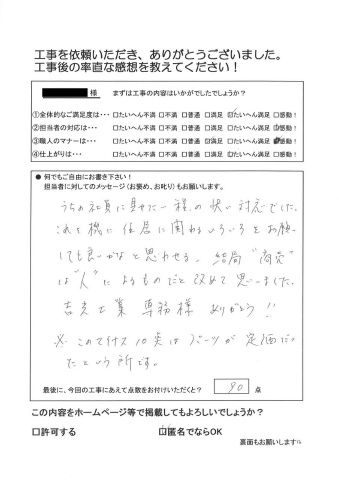 工事を依頼いただき、ありがとうございました。
工事後の率直な感想を教えてください！
様 まずは工事の内容はいかがでしたでしょうか？
①全体的なご満足度は･･･ □たいへん不満 □不満 □普通 □満足 ☑たいへん満足 □感動！
②担当者の対応は･･･ □たいへん不満 □不満 □普通 □満足 □たいへん満足 ☑感動！
③職人のマナーは･･･ □たいへん不満 □不満 □普通 ☑満足 □たいへん満足 ■感動！
④仕上がりは･･･ □たいへん不満 □不満 □普通 □満足 ☑たいへん満足 □感動！
● 何でもご自由にお書き下さい！
担当者に対してのメッセージ（お褒め、お叱り）もお願いします。
うちの社員に見せたい程の 対応でした。
これを機に住居に関わるいろいろをお願い
しても良いかなと思わせる。結局"商売"
は"人"によるものだと改めて思いました。
工業 専務様 ありがとう!!
※ このマイナス10点はパーツが定価だっ
たという所です。
最後に、今回の工事にあえて点数をお付けいただくと？ 90 点
この内容をホームページ等で掲載してもよろしいでしょうか？
□許可する ☑匿名でならOK
裏面もお願いします